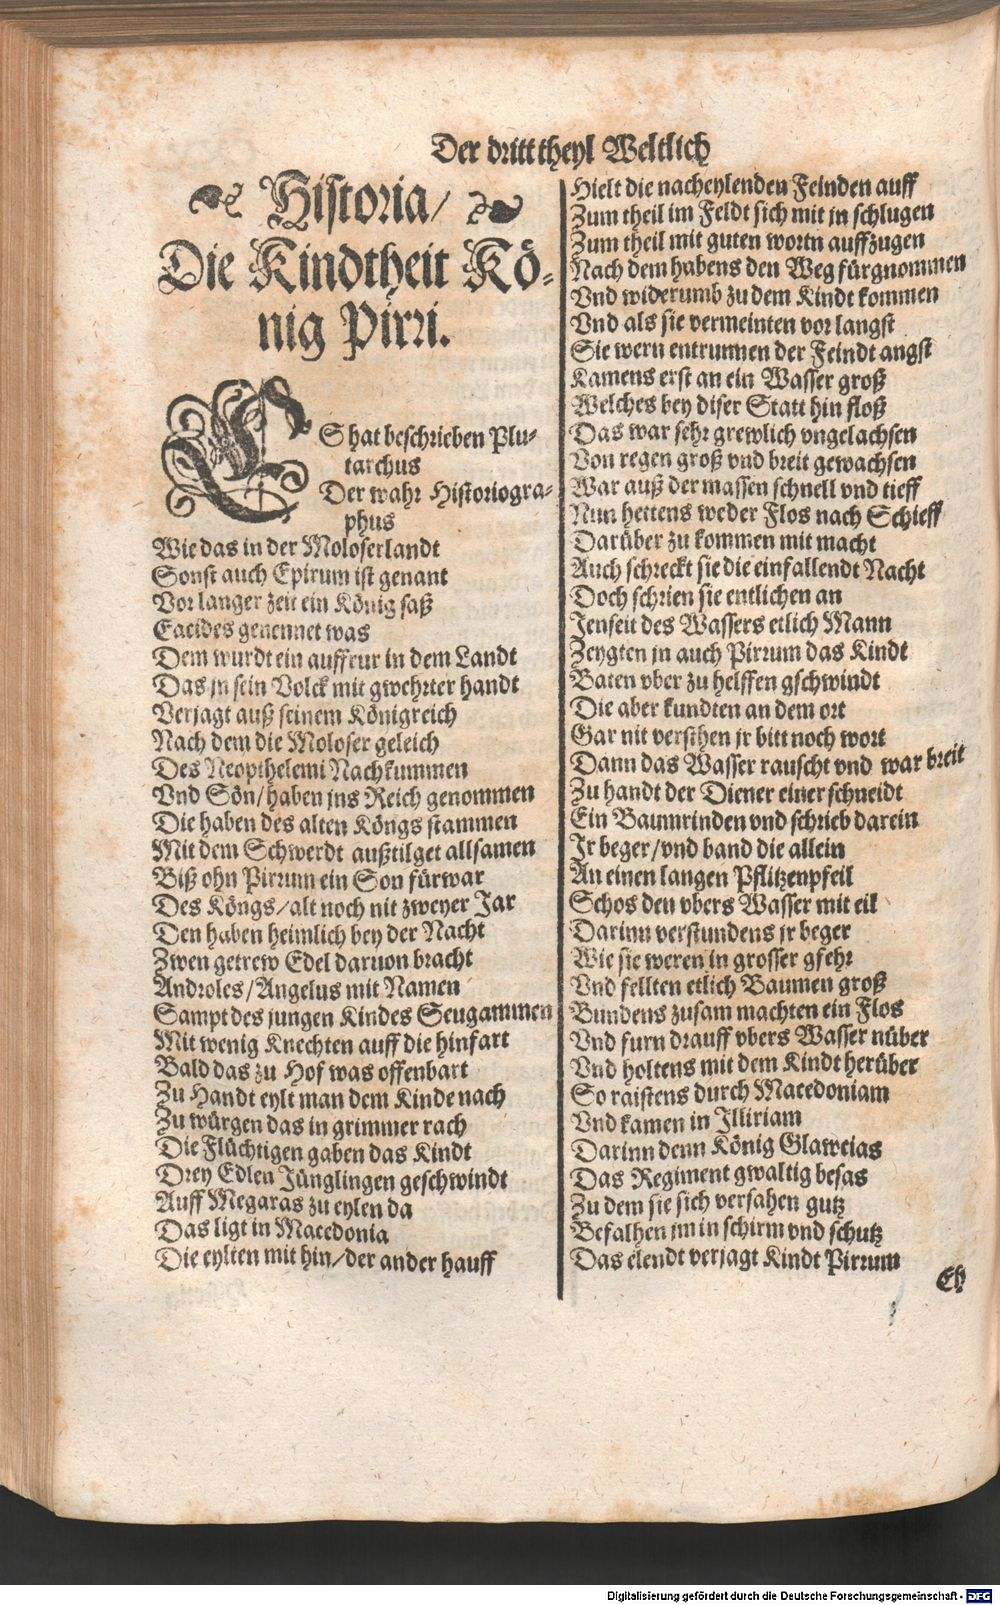 Der dritt theyl Weltlich
Historia/
Die Kindtheit Kö-
nig Pirri.
ES hat beschrieben Plu-
tarchus
Der wahr Historiogra-
phus
Wie das in der Moloserlandt
Sonst auch Epirum ist genant
Vor langer zeit ein König saß
Eacides genennet was
Dem wurdt ein auffrur in dem Landt
Das jn sein Volck mit gwehrter handt
Verjagt auß seinem Königreich
Nach dem die Moloser geleich
Des Neopthelemi Nachkummen
Vnd Sön/haben jns Reich genommen
Die haben des alten Köngs stammen
Mit dem Schwerdt außtilget allsamen
Biß ohn Pirrum ein Son fürwar
Des Köngs/alt noch nit zweyer Jar
Den haben heimlich bey der Nacht
Zwen getrew Edel daruon bracht
Androles/Angelus mit Namen
Sampt des jungen Kindes Seugammen
Mit wenig Knechten auff die hinfart
Bald das zu Hof was offenbart
Zu Handt eylt man dem Kinde nach
Zu würgen das in grimmer rach
Die Flüchtigen gaben das Kindt
Drey Edlen Jünglingen geschwindt
Auff Megaras zu eylen da
Das ligt in Macedonia
Die eylten mit hin/der ander hauff
Hielt die nacheylenden Feinden auff
Zum theil im Feldt sich mit jn schlugen
Zum theil mit guten wortn auffzugen
Nach dem habens den Weg fürgnommen
Vnd widerumb zu dem Kindt kommen
Vnd als sie vermeinten vor langst
Sie wern entrunnen der Feindt angst
Kamens erst an ein Wasser groß
Welches bey diser Statt hin floß
Das war sehr grewlich vngelachsen
Von regen groß vnd breit gewachsen
War auß der massen schnell vnd tieff
Nun hettens weder Flos nach Schieff
Darüber zu kommen mit macht
Auch schreckt sie die einfallendt Nacht
Doch schrien sie entlichen an
Jenseit des Wassers etlich Mann
Zeygten jn auch Pirrum das Kindt
Baten vber zu helffen gschwindt
Die aber kundten an dem ort
Gar nit versthen jr bitt noch wort
Dann das Wasser rauscht vnd war breit
Zu handt der Diener einer schneidt
Ein Baumrinden vnd schrieb darein
Jr beger/vnd band die allein
An einen langen Pflitzenpfeil
Schos den vbers Wasser mit eil
Darinn verstundens jr beger
Wie sie weren in grosser gfehr
Vnd fellten etlich Baumen groß
Bundens zusam machten ein Flos
Vnd furn drauff vbers Wasser nüber
Vnd holtens mit dem Kindt herüber
So raistens durch Macedoniam
Vnd kamen in Illiriam
Darinn denn König Glaweias
Das Regiment gwaltig besas
Zu dem sie sich versahen gutz
Befalhen jm in schirm vnd schutz
Das elendt verjagt Kindt Pirrum
Eh
Digitalisierung gefördert durch die Deutsche Forschungsgemeinschaft - DFG